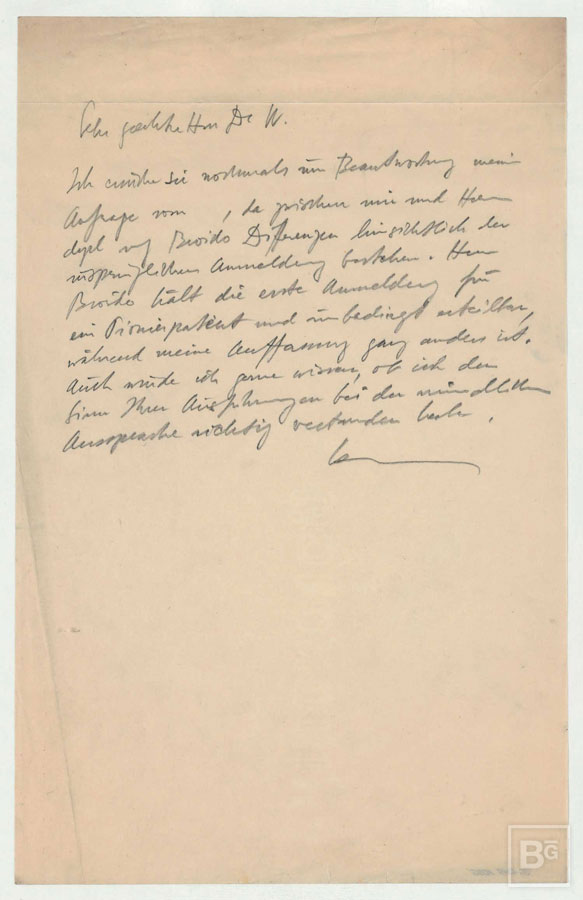 Sehr geehrter Herr Dr W.
Ich ersuche Sie nochmals um Beantwortung meiner
Anfrage vom , da zwischen mir und Herrn
dipl Ing Broido Differenzen hinsichtlich der
ursprünglichen Anmeldung bestehen. Herr
Broido hält die erste Anmeldung für
ein Pionierpatent und unbedingt erteilbar,
während meine Auffassung ganz anders ist.
Auch würde ich gerne wissen, ob ich den
Sinn Ihrer Ausführungen bei der mündlichen
Aussprache richtig verstanden habe.
BG